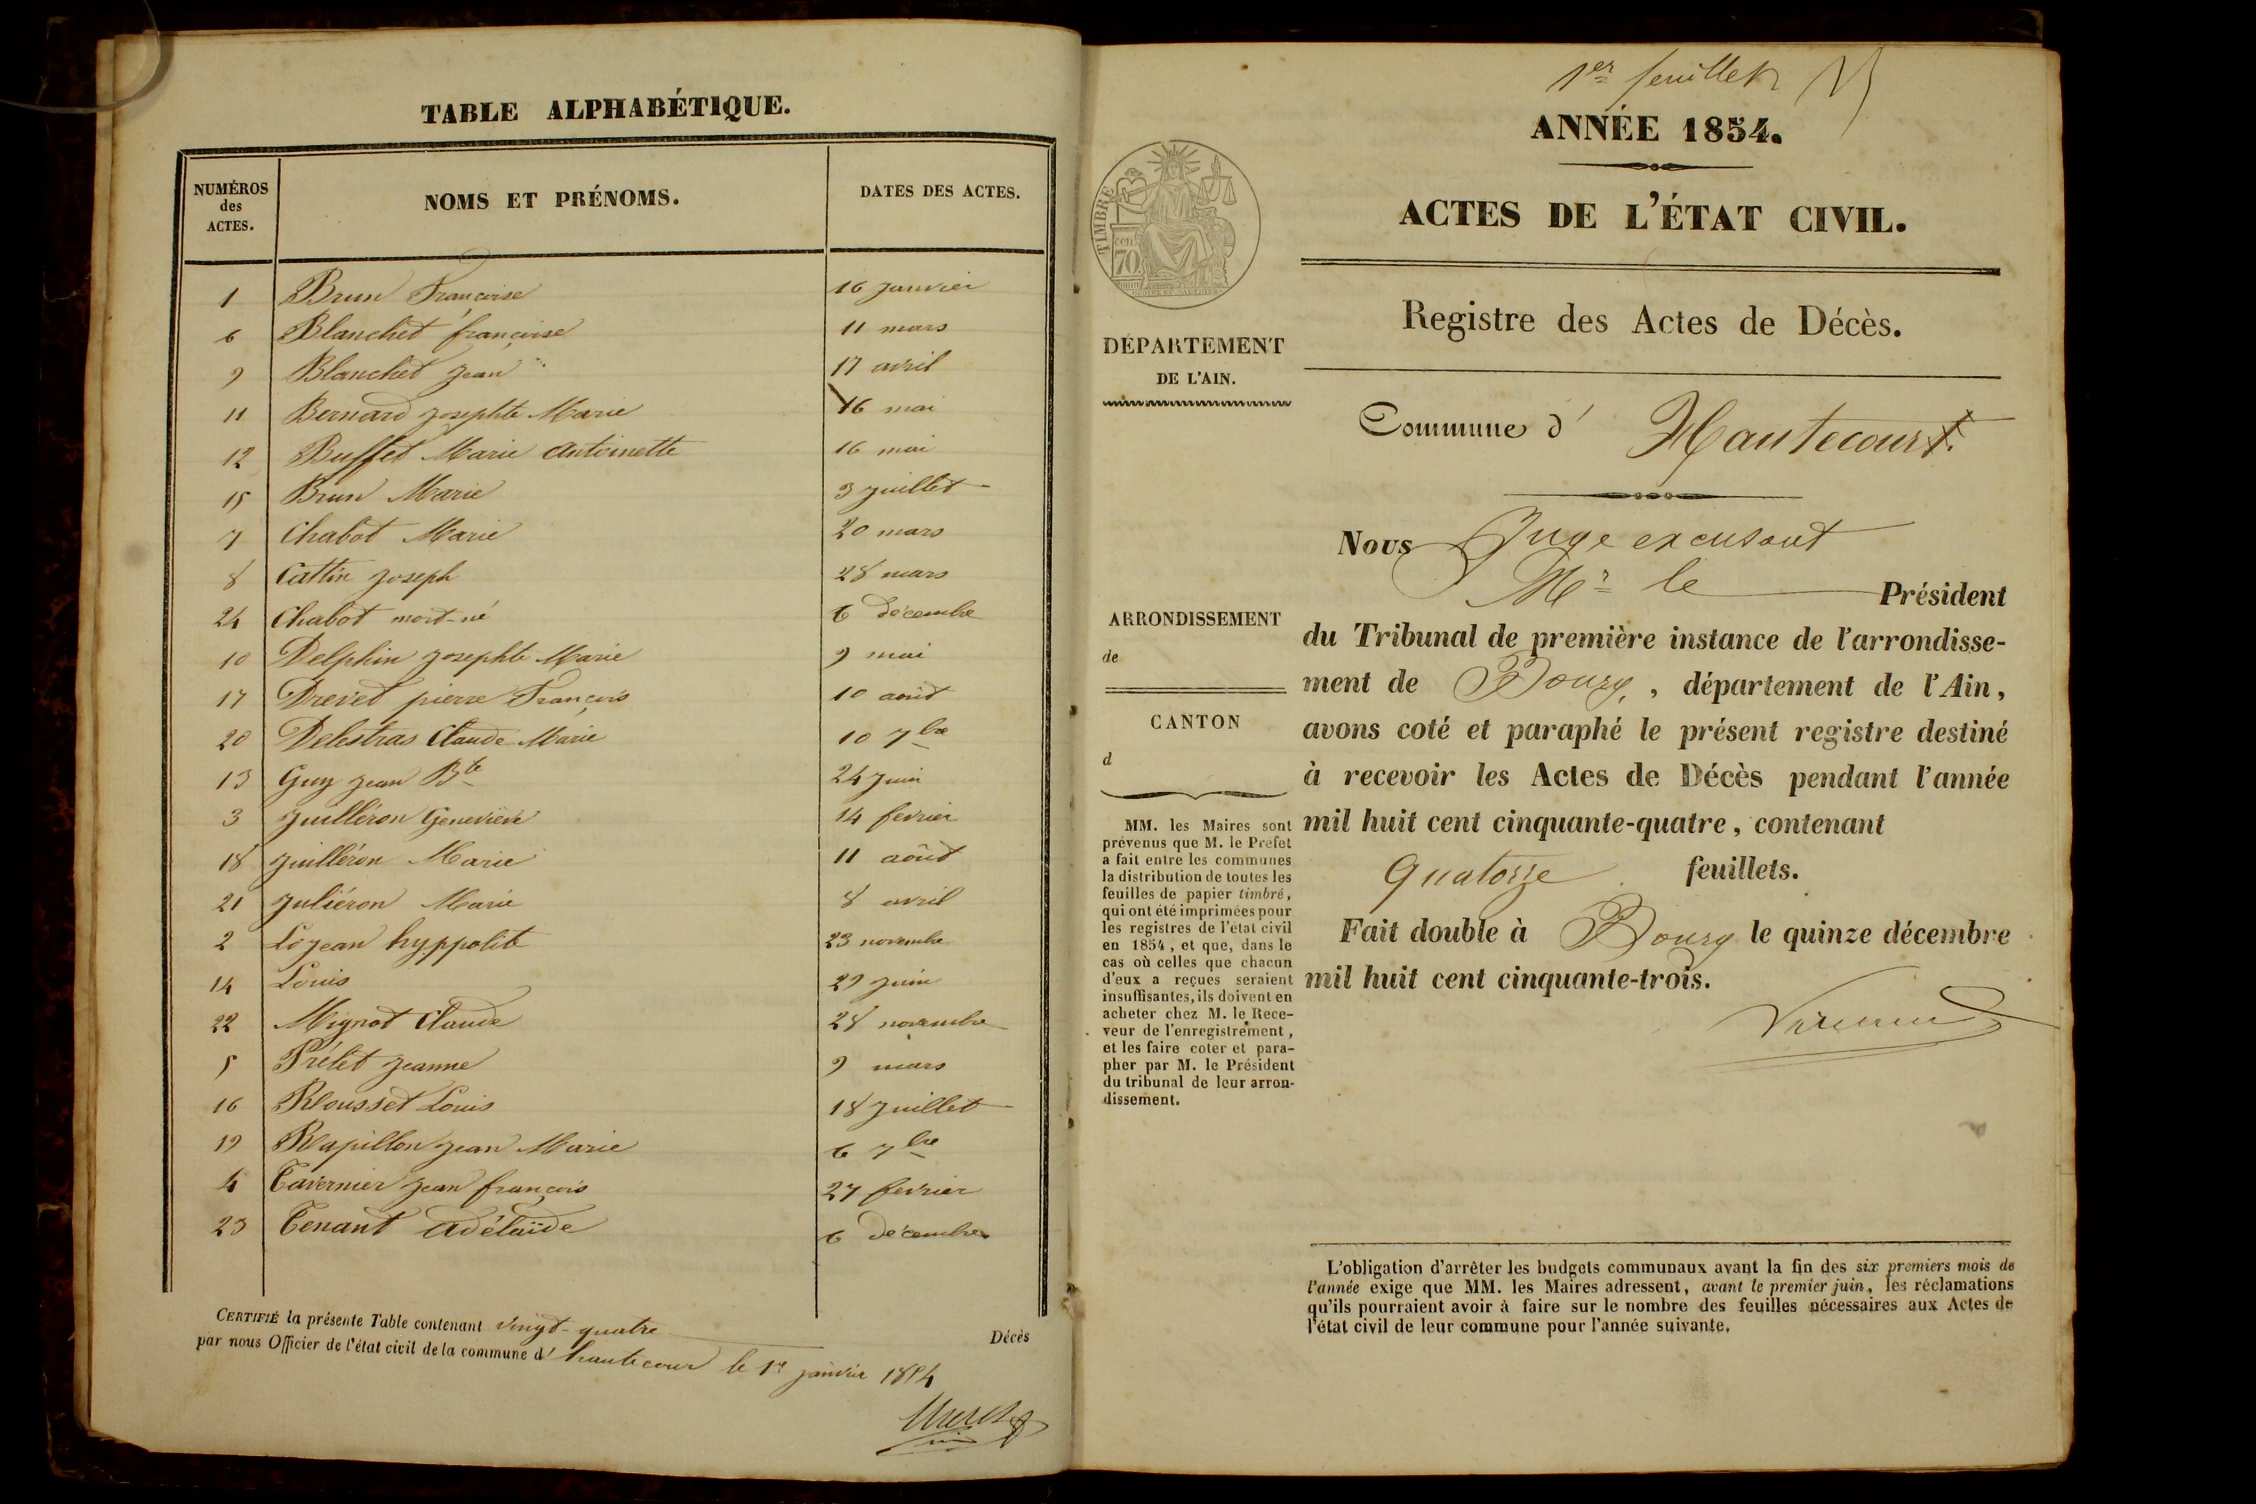 TABLE ALPHABÉTIQUE.
NUMÉROS des ACTES. NOMS ET PRÉNOMS. DATES DES ACTES.
1 Brun Françoise 16 janvier
6 Blanchet françoise 11 mars
9 Blanchet jean 17 avril
11 Bernard josephte Marie 16 mai
12 Buffet Marie antoinette 16 mai
15 Brun Marie 3 juillet
7 Chabot Marie 20 mars
8 Cattin joseph 28 mars
24 Chabot mort-né 6 décembre
10 Delphin josephte Marie 9 mai
17 Drevet pierre François 10 août
20 Delestras Claude Marie 10 7bre
13 Guy jean Bte 24 juin
3 juilléron Geneviève 14 fevrier
18 juilléron Marie 11 août
21 juliéron Marie 8 avril
2 Lojean hyppolite 23 novembre
14 Louis 29 juin
22 Mignot Claude 28 novembre
5 Prélet jeanne 9 mars
16 Rousset Louis 18 juillet
19 Rapillon jean Marie 6 7bre
4 Tavernier jean françois 27 fevrier
23 Tenant adélaïde 6 décembre
CERTIFIÉ la présente Table contenant vingt-quatre Décès
par nous Officier de l'état civil de la commune d' hautecour le 1er janvier 1854
1er feuillet
ANNÉE 1854.
ACTES DE L'ÉTAT CIVIL.
TIMBRE
70 cent
Registre des Actes de Décès.
DÉPARTEMENT
DE L'AIN.
Commune d' Hautecourt.
Nous Juge excusant
Mr le Président
du Tribunal de première instance de l'arrondisse-
ment de Bourg, , département de l'Ain,
avons coté et paraphé le présent registre destiné
à recevoir les Actes de Décès pendant l'année
mil huit cent cinquante-quatre, contenant
Quatorze feuillets.
Fait double à Bourg le quinze décembre
mil huit cent cinquante-trois.
ARRONDISSEMENT
de
CANTON
d
MM. les Maires sont
prévenus que M. le Préfet
a fait entre les communes
la distribution de toutes les
feuilles de papier timbré,
qui ont été imprimées pour
les registres de l'état civil
en 1854, et que, dans le
cas où celles que chacun
d'eux a reçues seraient
insuffisantes, ils doivent en
acheter chez M. le Rece-
veur de l'enregistrement,
et les faire coter et para-
pher par M. le Président
du tribunal de leur arron-
dissement.
L'obligation d'arrêter les budgets communaux avant la fin des six premiers mois de
l'année exige que MM. les Maires adressent, avant le premier juin, les réclamations
qu'ils pourraient avoir à faire sur le nombre des feuilles nécessaires aux Actes de
l'état civil de leur commune pour l'année suivante.